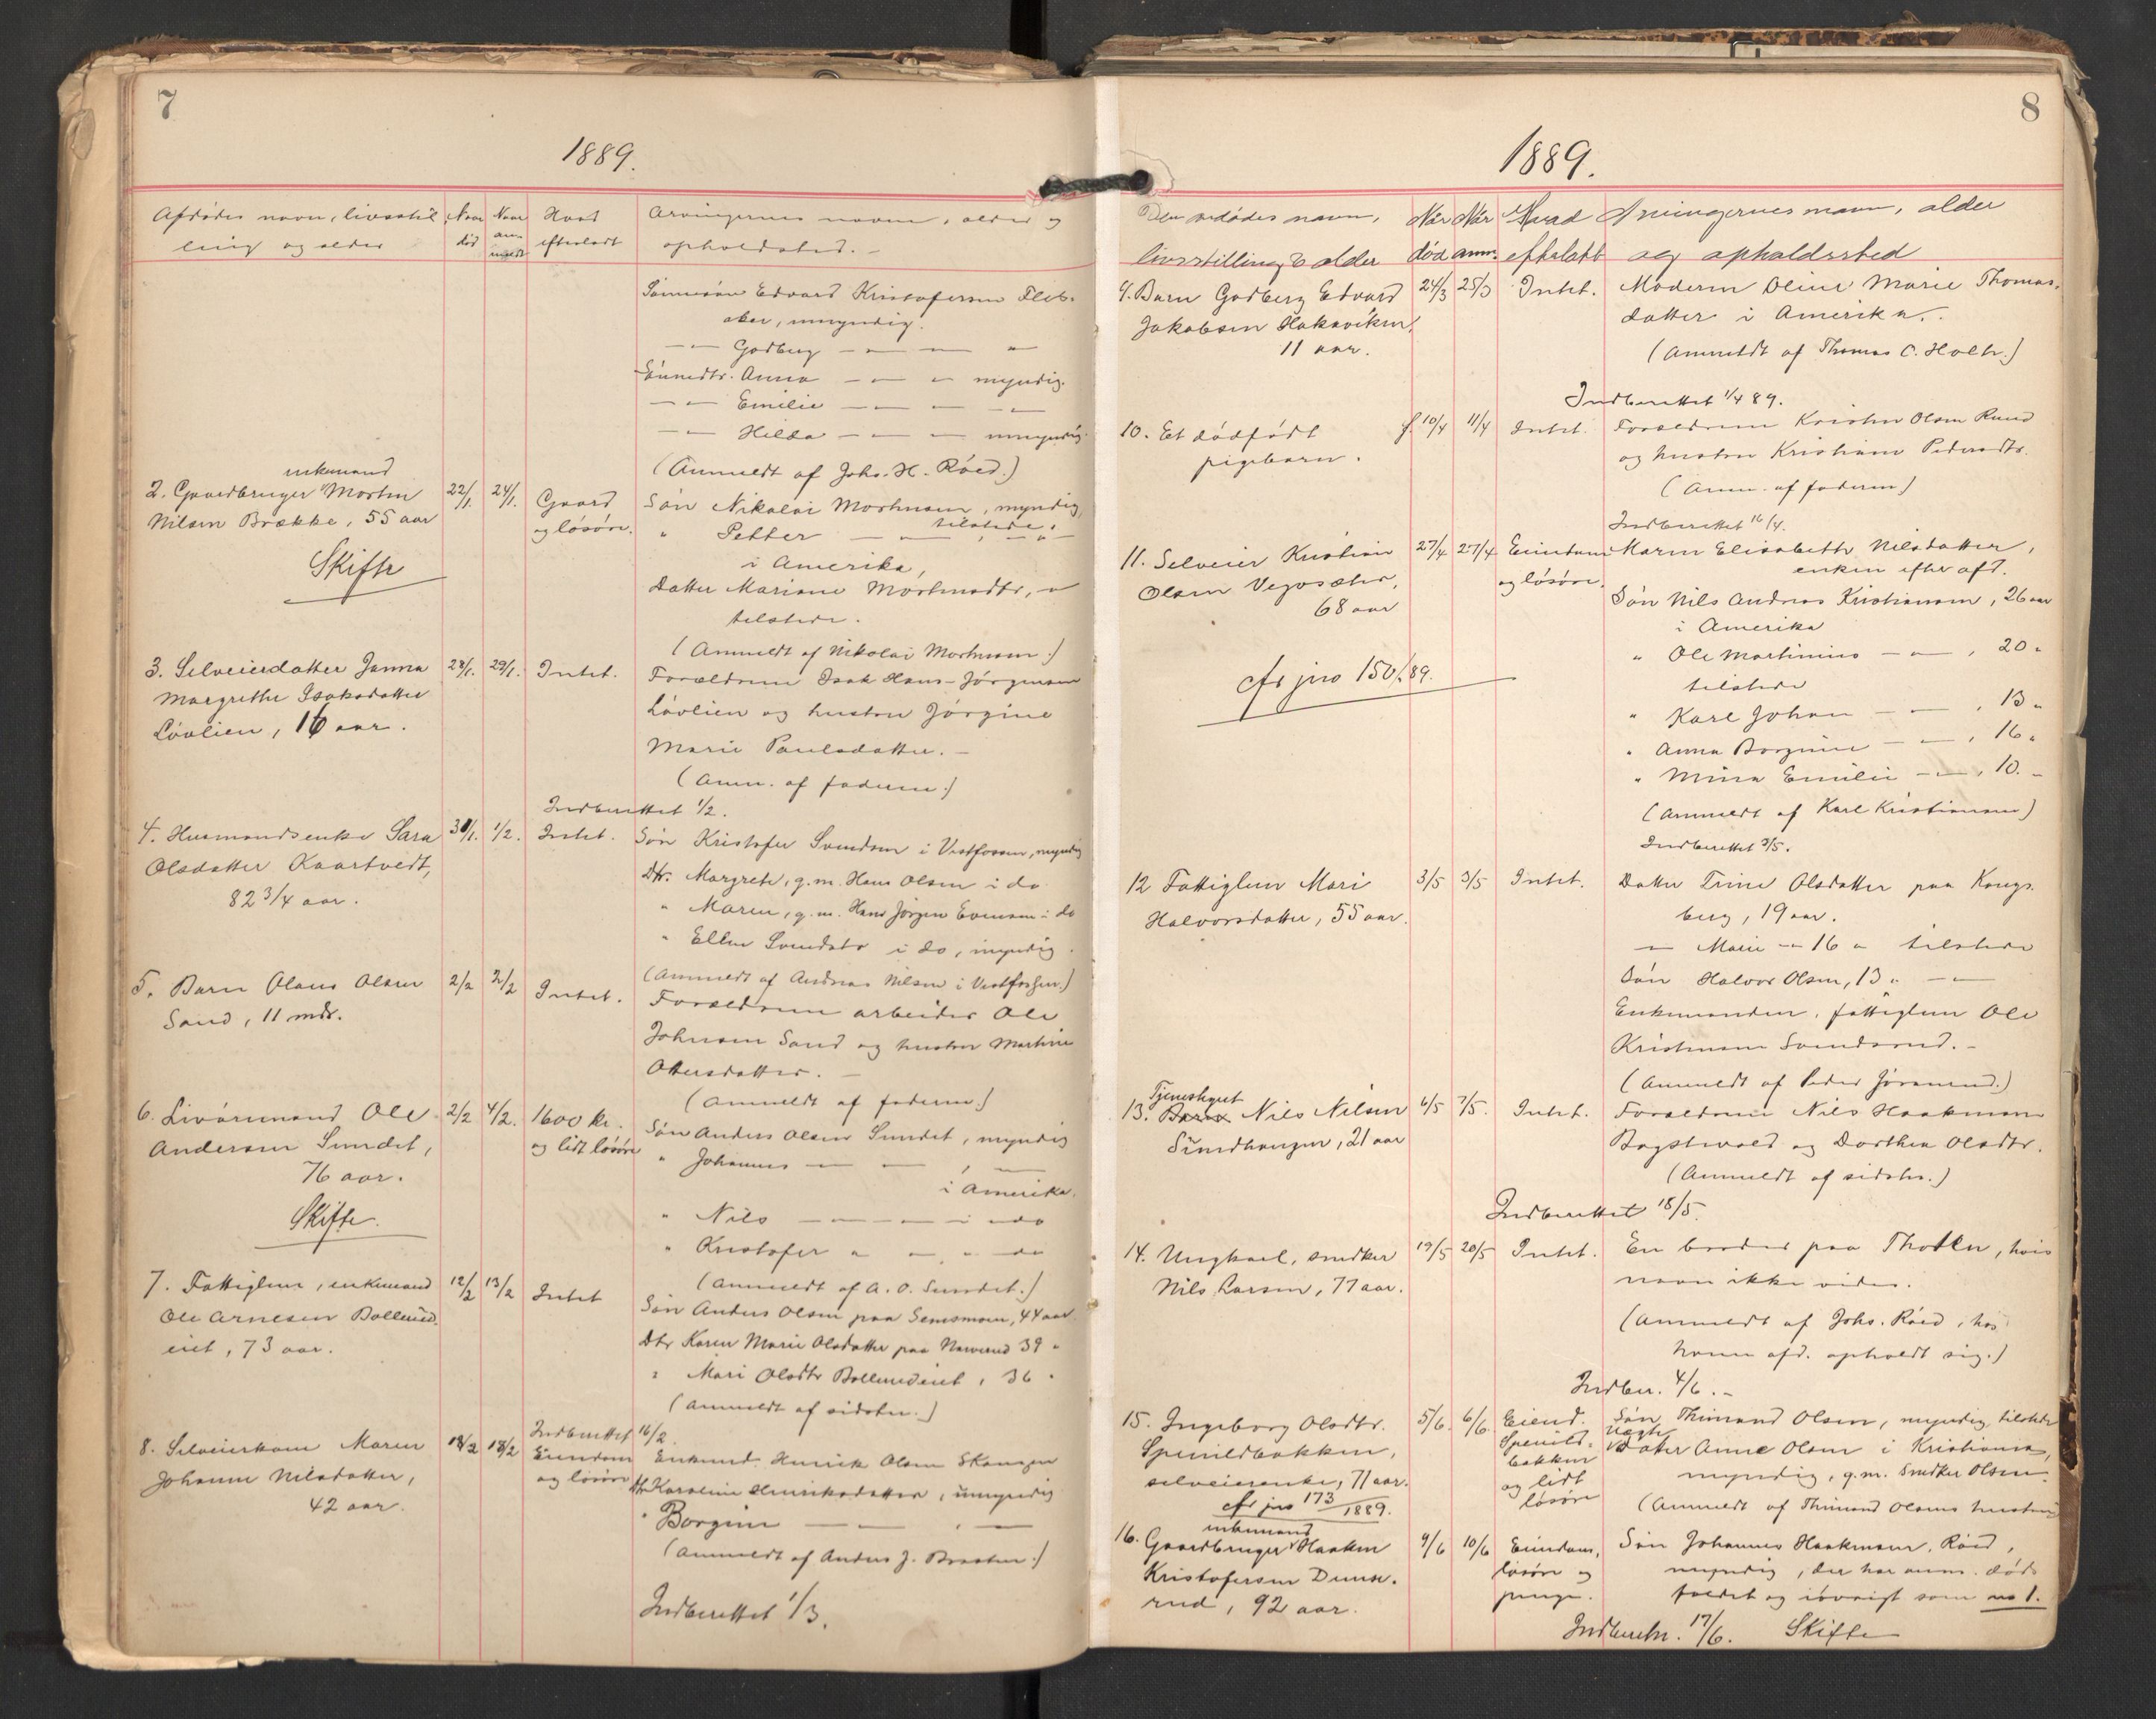 7
1889.
Afdødes navn, livsstil
ling og alder
Naar
død
Naar
an-
meldt
Hvad
efterladt
Arvingernes navne, alder og
opholdsted. -
Sønnesøn Edvard Kristofersen Fleb-
aker, umyndig.
— " — Godberg — " — — "
Sønnedtr. Anna — " — " myndig.
— " — Emilie — " — — " —
— " — Hilda — " — — umyndig.
(Anmeldt af Johs. H. Røed.)
enkemand
2. Gaardbruger Morten 22/1. 24/1. Gaard Søn Nikolai Mortensen, myndig,
Nilsen Brække, 55 aar og løsøre. tilstede.
" Petter — " — , — " —
Skifte
i Amerika,
Datter Mariane Mortensdtr, "
tilstede.
(Anmeldt af Nikolai Mortensen.)
3. Selveierdatter Janna 28/1. 29/1. Intet. Forældrene Isak Hans-Jørgensen
Margrethe Isaksdatter Løvlien og hustru Jørgine
Løvlien, 16 aar. Marie Paulsdatter. -
(Anm. af faderen.)
Indberettet 1/2.
4. Husmandsenke Sara 30/1. 1/2. Intet. Søn Kristofer Svendsen i Vestfossen, myndig
Olsdatter Kaartvedt, Dtr. Margrete, g.m. Hans Olsen i do
82 3/4 aar. " Maren, g.m. Hans Jørgen Evensen i do
" Ellen Svendsdtr i do, myndig.
(Anmeldt af Andreas Nilsen i Vestfossen.)
5. Barn Olaus Olsen 2/2 2/2 Intet. Forældrene arbeider Ole
Sand, 11 mdr. Johnsen Sand og hustru Martine
Ottersdatter. —
(Anmeldt af faderen.)
6. Livøremand Ole 2/2 4/2. 1600 kr. Søn Anders Olsen Sundet, myndig
Andersen Sundet, og lidt løsøre " Johannes — " — , —
76 aar. i Amerika.
Skifte.
" Nils — " — " — i do
" Kristofer " — " do
(Anmeldt af A. O. Sundet.)
7. Fattiglem, enkemand 12/2 13/2 Intet Søn Anders Olsen paa Semsmoen, 44 aar
Ole Arnesen Bollerud- Dtr Karen Marie Olsdatter paa 39 "
eiet, 73 aar. " Mari Olsdtr Bollerudeiet, 36 "
(Anmeldt af sidstn.)
Indberettet 16/2.
8. Selveierkone Maren 18/2 18/2 Eiendom Enkemd. Henrik Olsen Skangen
Johanne Nilsdatter, og løsøre Dtr Karoline Henriksdatter, umyndig
42 aar. " Borgine — " — , —
(Anmeldt af Anders J. Braaten.)
Indberettet 1/3.
8
1889.
Den afdødes navn,
livsstilling & alder
Når
død
Når
anm.
Hvad
efterladt
Arvingernes navn, alder
og opholdssted
9. Barn Godberg Edvard 24/3 25/3 Intet. Moderen Oline Marie Thomas-
Jakobsen Hakaviken, datter i Amerika.
11 aar. (Anmeldt af Thomas C. Holte.)
Indberettet 1/4 89.
10. Et dødfødt f. 10/4 11/4 Intet. Forældrene Kristen Olsen Ruud
pigebarn. og hustru Kristiane Pedersdtr.
(Anm. af faderen)
Indberettet 16/4.
11. Selveier Kristian 27/4 27/4 Eiendom Maren Elisabeth Nilsdatter,
Olsen Vegosæter, og løsøre. enken efter afd.
68 aar Søn Nils Andreas Kristiansen, 26 aar
i Amerika
" Ole Martinius — " — , 20 "
cfr jno 150/89. tilstede
" Karl Johan — " — , 13 "
" Anna Borgine — " — , 16 "
" Mina Emilie — " — , 10. "
(Anmeldt af Karl Kristiansen)
Indberettet 3/5.
12 Fattiglem Mari 3/5 3/5 Intet. Datter Trine Olsdatter paa Kongs-
Halvorsdatter, 55 aar. berg, 19 aar.
— " Marie — " 16 " tilstede
Søn Halvor Olsen, 13 " — " —
Enkemanden, fattiglem Ole
Kristensen Svendsrud. -
(Anmeldt af Peder Jørandrud.)
Tjenestegut
13. Barn Nils Nilsen 6/5 7/5. Intet. Forældrene Nils Haakensen
Sundhaugen, 21 aar Bagstevold og Dorthea Olsdtr.
(Anmeldt af sidstn.)
Indberettet 18/5.
14. Ungkarl, snedker 19/5 20/5 Intet. En broder paa Thoten, hvis
Nils Larsen, 77 aar. navn ikke vides.
(Anmeldt af Johs. Røed, hos
hvem afd. opholdt sig.)
Indber. 4/6. -
15. Ingeborg Olsdtr. 5/6. 6/6. Eiend. Søn Thimand Olsen, myndig, tilstede
Spenildbakken, Spenild-bakken Datter Anne Olsen i Kristiania,
selveierenke, 71 aar. og lidt løsøre myndig, g.m. Snedker Olsen.
cfr jno 173/1889. (Anmeldt af Thimand Olsens hustru)
enkemand
16. Gaardbruger Haaken 9/6 10/6 Eiendom, Søn Johannes Haakensen Røed,
Kristofersen Dunse- løsøre og myndig, der har anm. døds-
rud, 92 aar. penge. faldet og iøvrigt som no 1.
Indberettet. 17/6. Skifte